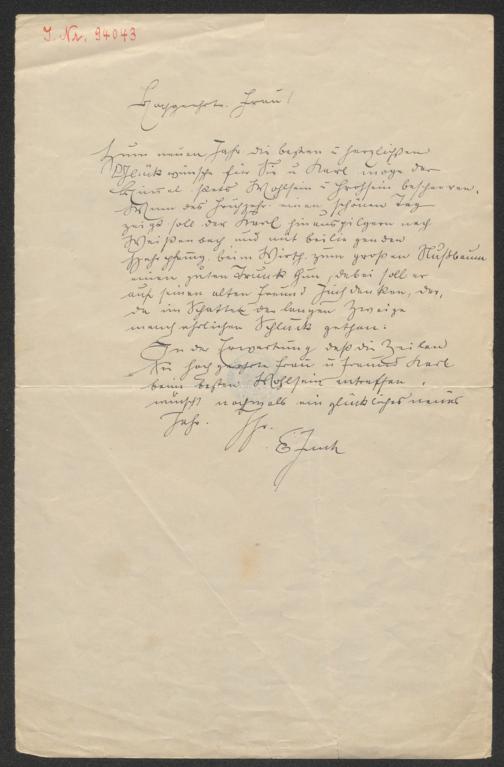 J. Nr. 94043
Hochgeehrte Frau!
Zum neuen Jahr die besten u herzlichsten
Glückwünsche für Sie u Karl möge der
Himmel stets Wohlsein u Frohsein bescheeren.
Wenn das Frühjahr einen schönen Tag
zeigt soll der Karl hinauspilgern nach
Weißenbach und mit beiliegenden
beim Wirth zum großen Nußbaum
einen guten Trunk thun, dabei soll er
auf seinen alten Freund Juch denken, der,
da im Schatten der langen Zweige
manch ehrlichen Schluck gethan.
In der Erwartung daß die Zeilen
Sie hochgeehrte Frau u Freund Karl
beim besten Wohlsein antreffen,
wünscht nochmals ein glückliches neues
Jahr. Ihr
E Juch